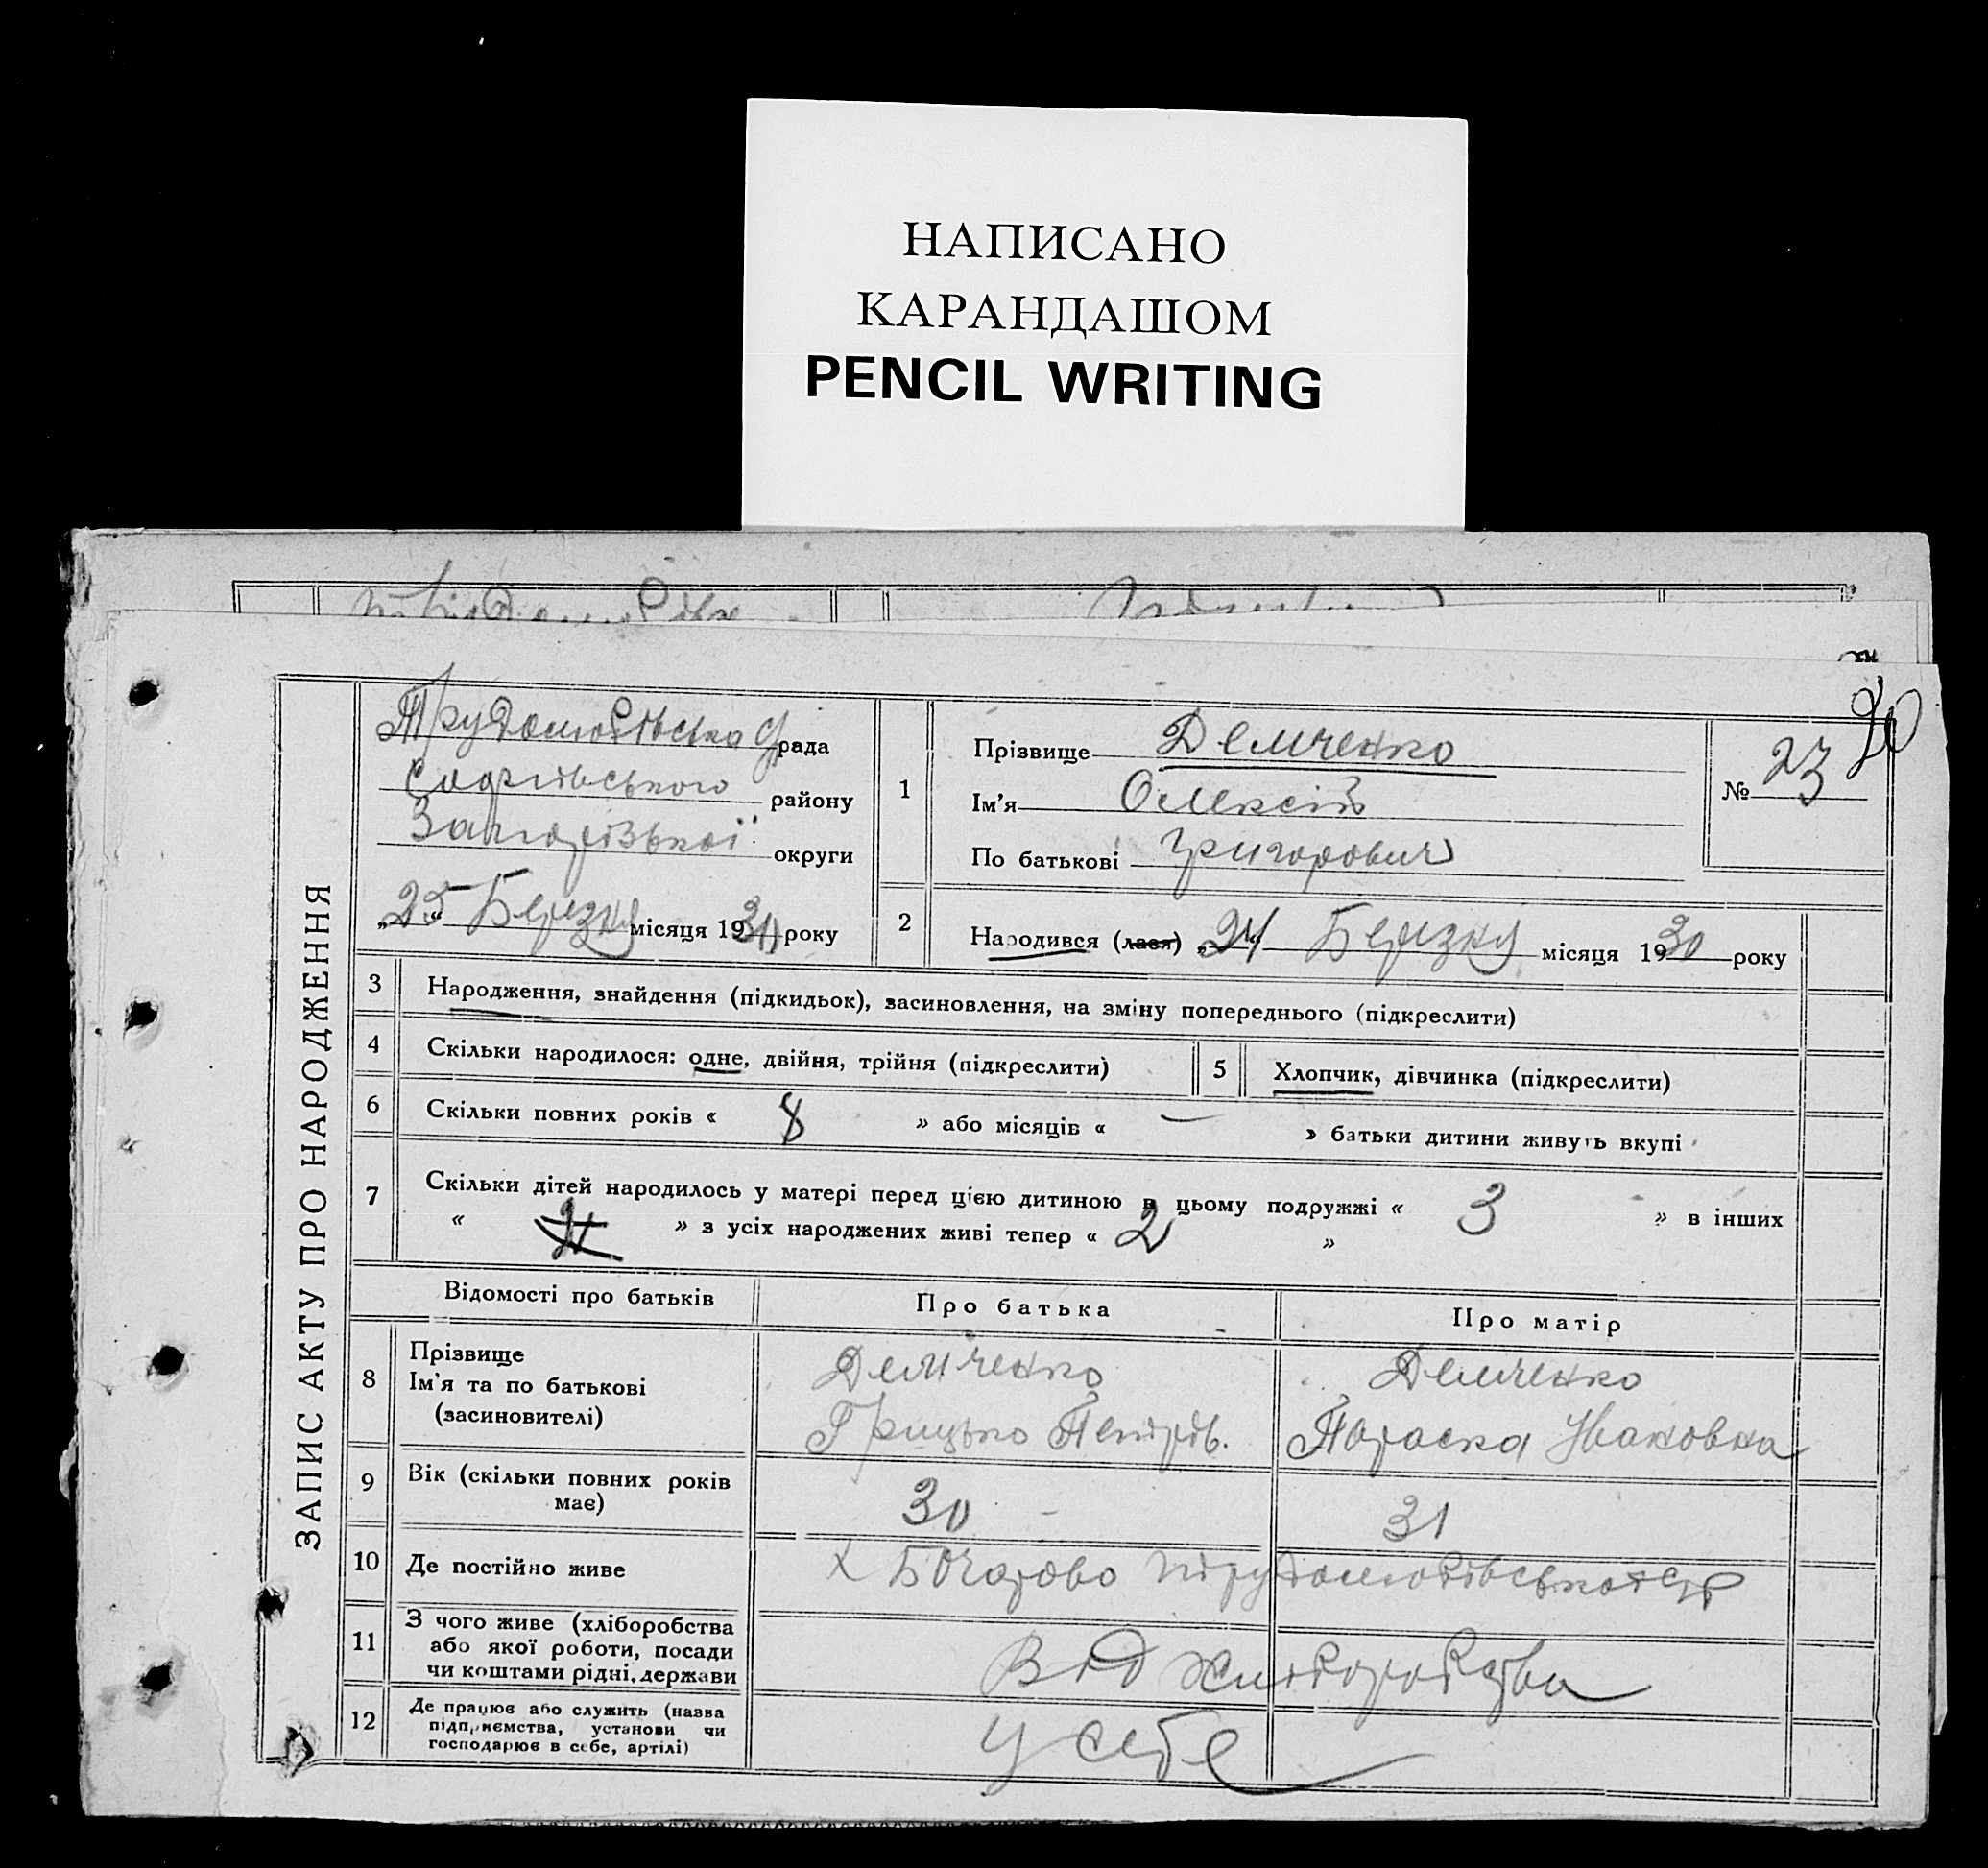 НАПИСАНО
КАРАНДАШОМ
PENCIL WRITING
ЗАПИС АКТУ ПРО НАРОДЖЕННЯ
Трудолюбівська рада
Софіївського району
Запорізької округи
„25“ Березня місяця 19 року
1
Прізвище Демченко
Ім'я Олексій
По батькові Григорович
№ 23
2
Народився (лася) „24“ Березня місяця 1930 року
3 Народження, знайдення (підкидьок), засиновлення, на зміну попереднього (підкреслити)
4 Скільки народилося: одне, двійня, трійня (підкреслити)
5 Хлопчик, дівчинка (підкреслити)
6 Скільки повних років « 8 » або місяців « — » батьки дитини живуть вкупі
7 Скільки дітей народилось у матері перед цією дитиною в цьому подружжі « 3 » в інших
« » з усіх народжених живі тепер « 2 »
Відомості про батьків Про батька Про матір
8 Прізвище Демченко Демченко
Ім'я та по батькові Грицько Петрів. Параска Ивановна
(засиновителі)
9 Вік (скільки повних років має) 30 31
10 Де постійно живе х Бочарово Трудолюбівської ср
11 З чого живе (хліборобства
або якої роботи, посади
чи коштами рідні, держави
Від хліборобства
12 Де працює або служить (назва
підприємства, установи чи
господарює в себе, артілі)
У себе